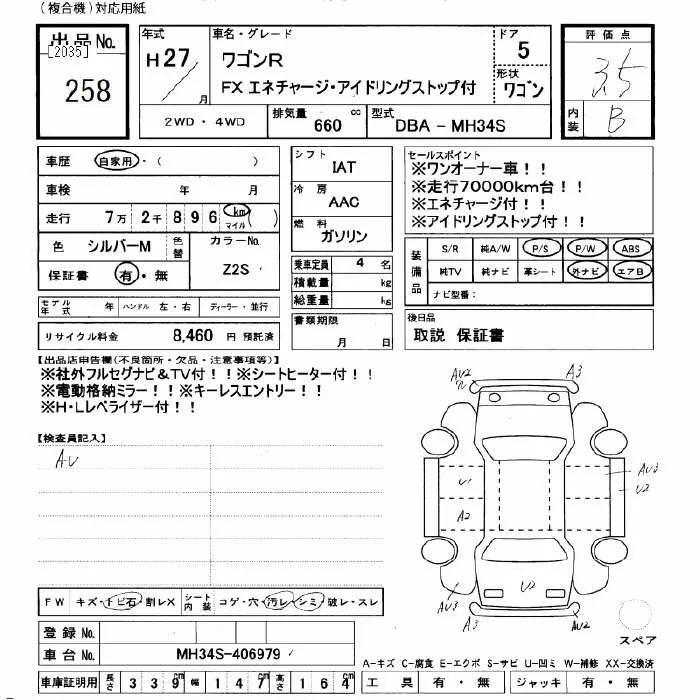 (複合機)対応用紙
出品No.
[2035]
258
年式
H27/月
車名・グレード
ワゴンR
FX エネチャージ・アイドリングストップ付
ドア
5
形状
ワゴン
評価点
3.5
内装
B
2WD・4WD
排気量 660 cc
型式 DBA - MH34S
車歴 自家用・( )
車検 年 月
走行 7万 2千 8 9 6 km マイル ( )
色 シルバーM 色替
カラーNo.
Z2S
保証書 有・無
モデル年式 年 ハンドル 左・右 ディーラー・並行
リサイクル料金 8,460 円 預託済
シフト
IAT
冷房
AAC
燃料
ガソリン
乗車定員 4 名
積載量 kg
総重量 kg
書類期限
月 日
セールスポイント
※ワンオーナー車!!
※走行70000km台!!
※エネチャージ付!!
※アイドリングストップ付!!
装備品
S/R 純A/W P/S P/W ABS
純TV 純ナビ 革シート 外ナビ エアB
ナビ型番:
後日品
取説 保証書
【出品店申告欄(不良箇所・欠品・注意事項等)】
※社外フルセグナビ&TV付!!※シートヒーター付!!
※電動格納ミラー!!※キーレスエントリー!!
※H・Lレベライザー付!!
【検査員記入】
AU
AU2
A3
U1
A2
AU3
U2
U2
AU3
A3
AU2
スペア
FW キズ・トビ石・割レX シート内装 コゲ・穴・汚レ・シミ・破レ・スレ
登録No.
車台No. MH34S-406979
車庫証明用 長さ 3 3 9 cm 幅 1 4 7 cm 高さ 1 6 4 cm
A-キズ C-腐食 E-エクボ S-サビ U-凹ミ W-補修 XX-交換済
工具 有・無 ジャッキ 有・無